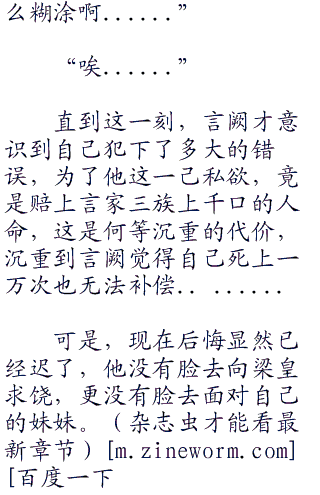 么糊涂啊......”
“唉......”
直到这一刻，言阙才意
识到自己犯下了多大的错
误，为了他这一己私欲，竟
是赔上言家三族上千口的人
命，这是何等沉重的代价，
沉重到言阙觉得自己死上一
万次也无法补偿.. ......
可是，现在后悔显然已
经迟了，他没有脸去向梁皇
求饶，更没有脸去面对自己
的妹妹。（杂志虫才能看最
新章节）[m.zineworm.com]
[百度一下